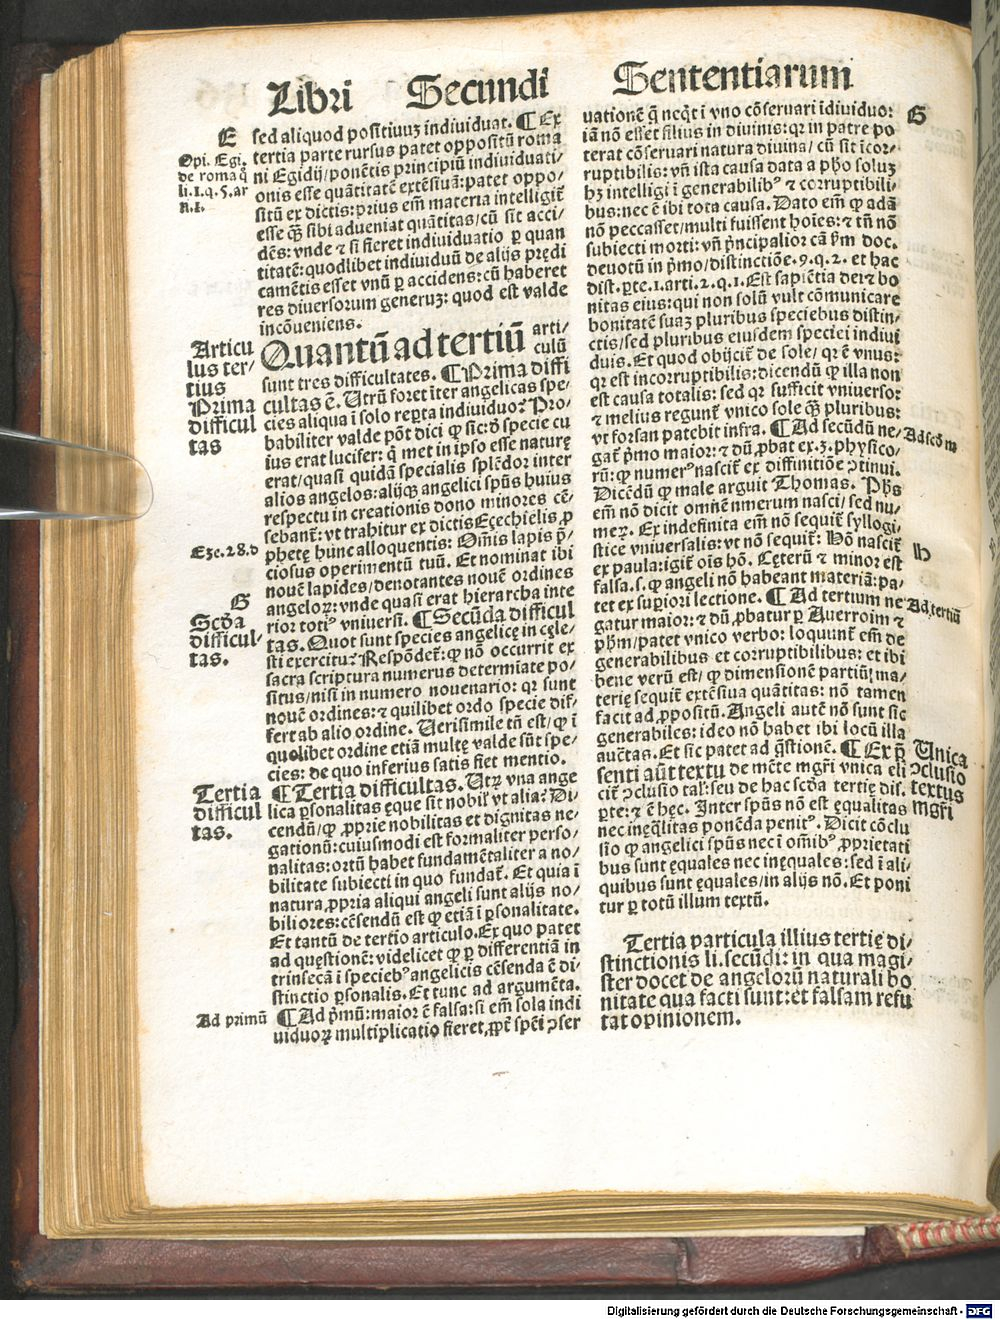 Libri Secundi Sententiarum
E
Opi. Egi.
de roma q̄
li.1.q.5.ar
n.1.
sed aliquod positiuuʒ indiuiduat. ¶ Ex
tertia parte rursus patet oppositū roma
ni Egidij/ponētis principiū indiuiduati/
onis esse quātitatē extēsiuā: patet oppo/
sitū ex dictis: prius em̄ materia intelligit̄
esse q̄ʒ sibi adueniat quātitas/cū sit acci/
dēs: vnde ⁊ si fieret indiuiduatio ꝑ quan
titatē: quodlibet indiuiduū de alijs prędi
camētis esset vnū ꝑ accidens: cū haberet
res diuersorum generuʒ: quod est valde
incōueniens.
Articu
lus ter-
tius
Prima
difficul
tas
Quantū ad tertiū arti/
culū
sunt tres difficultates. ¶ Prima diffi
cultas ē. Utrū foret iter angelicas spe-
cies aliqua i solo reꝑta indiuiduo? Pro-
babiliter valde pōt dici ꝙ sic: ō specie cu
ius erat lucifer: q̄ met in ipso esse naturę
erat/quasi quidā specialis splēdor inter
alios angelos: alijqʒ angelici spūs huius
respectu in creationis dono minores cē-
sebant̄: vt trahitur ex dictis Eęechielis, ꝓ
Eʒe.28.d
phetę hūc alloquentis: Om̄is lapis p̄-
ciosus operimentū tuū. Et nominat ibi
nouē lapides/denotantes nouē ordines
angeloꝝ: vnde quasi erat hierarcha inte
G
Scd̄a
difficul-
tas.
rior toti⁹ vniuersi. ¶ Secūda difficul
tas. Quot sunt species angelicę in cęle-
sti exercitu? Respōdet̄: ꝙ nō occurrit ex
sacra scriptura numerus determiate po-
situs/nisi in numero nouenario: qꝛ sunt
nouē ordines: ⁊ quilibet ordo specie dif-
fert ab alio ordine. Uerisimile tn̄ est/ꝙ ī
quolibet ordine etiā multę valde sūt spe-
cies: de quo inferius satis fiet mentio.
Tertia
difficul
tas.
¶ Tertia difficultas. Utꝝ vna ange
lica ꝑsonalitas ęque sit nobil' vt alia? Di-
cendū/ꝙ ꝓprie nobilitas et dignitas ne-
gationū: cuiusmodi est formaliter perso/
nalitas: ortū habet fundamētaliter a no/
bilitate subiecti in quo fundat̄. Et quia ī
natura ꝓpria aliqui angeli sunt alijs no/
biliores: cēsendū est ꝙ etiā ī ꝑsonalitate.
Et tantū de tertio articulo. Ex quo patet
ad quęstionē: videlicet ꝙ ꝑ differentiā in
trinsecā ī specieb⁹ angelicis cēsenda ē di-
stinctio ꝑsonalis. Et tunc ad argumēta.
Ad primū
¶ Ad p̄mū: maior ē falsa: si em̄ sola indi
uiduoꝝ multiplicatio fieret, ꝓpt̄ spēi ↄser
uationē q̄ neqͥt i vno cōseruari īdiuiduo:
G
iā nō esset filius in diuinis: qꝛ in patre po
terat cōseruari natura diuina/ cū sit īcor-
ruptibilis: vn̄ ista causa data a pho soluʒ
hʒ intelligi ī generabilib⁹ ⁊ corruptibili-
bus: nec ē ibi tota causa. Dato em̄ ꝙ adā
nō peccasset/multi fuissent hoīes: ⁊ tn̄ nō
subiecti morti: vn̄ p̄ncipalior cā ẜm doc.
deuotū in p̄mo/distinctiōe.9.q.2. et hac
dist.ꝑte.1.arti.2.q.1. Est sapiētia dei ⁊ bo
nitas eius: qui non solū vult cōmunicare
bonitatē suaʒ pluribus speciebus distin-
ctis/sed pluribus eiusdem speciei indiui
duis. Et quod obijcit̄ de sole/ qꝛ ē vnus:
qꝛ est incorruptibilis: dicendū ꝙ illa non
est causa totalis: sed qꝛ sufficit vniuerso:
⁊ melius regunt̄ vnico sole q̄ʒ pluribus:
vt forsan patebit infra. ¶ Ad secūdū ne-
Ad scd̄m
gat̄ p̄mo maior: ⁊ dū ꝓbat ex.3. physico/
rū: ꝙ numer⁹ nascit̄ ex diffinitiōe ↄtinui.
Dicēdū ꝙ male arguit Thomas. Phs
em̄ nō dicit omnē numerum nasci/ sed nu-
meꝝ. Ex indefinita em̄ nō sequit̄ syllogi-
stice vniuersalis: vt nō sequit̄: Hō nascit̄
H
ex paula: igit̄ oīs hō. Cęterū ⁊ minor est
falsa.s. ꝙ angeli nō habeant materiā: pa-
tet ex suꝑiori lectione. ¶ Ad tertium ne
Ad tertiū
gatur maior: ⁊ dū ꝓbatur ꝑ Auerroim ⁊
phm/patet vnico verbo: loquunt̄ em̄ de
generabilibus et corruptibilibus: et ibi
bene verū est/ ꝙ dimensionē partiū ma/
terię sequit̄ extēsiua quātitas: nō tamen
facit ad ꝓpositū. Angeli autē nō sunt sic
generabiles: ideo nō habet ibi locū illa
auctas. Et sic patet ad q̄stionē. ¶ Ex p̄
Unica
ↄclusio
textus
mgr̄i
senti aūt textu de mēte mgr̄i vnica eli
cit̄ ↄclusio tal': seu de hac scd̄a tertię dis.
ꝑte: ⁊ ē hęc. Inter spūs nō est ęqualitas
nec inęq̄litas ponēda penit⁹. Dicit cōclu
sīo ꝙ angelici spūs nec ī om̄ib⁹ ꝓprietati
bus sunt ęquales nec inęquales: sed ī ali-
quibus sunt ęquales/in alijs nō. Et poni
tur ꝑ totū illum textū.
Tertia particula illius tertię di-
stinctionis li. secūdi: in qua magi-
ster docet de angelorū naturali bo
nitate qua facti sunt: et falsam refu
tat opinionem.
Digitalisierung gefördert durch die Deutsche Forschungsgemeinschaft - DFG